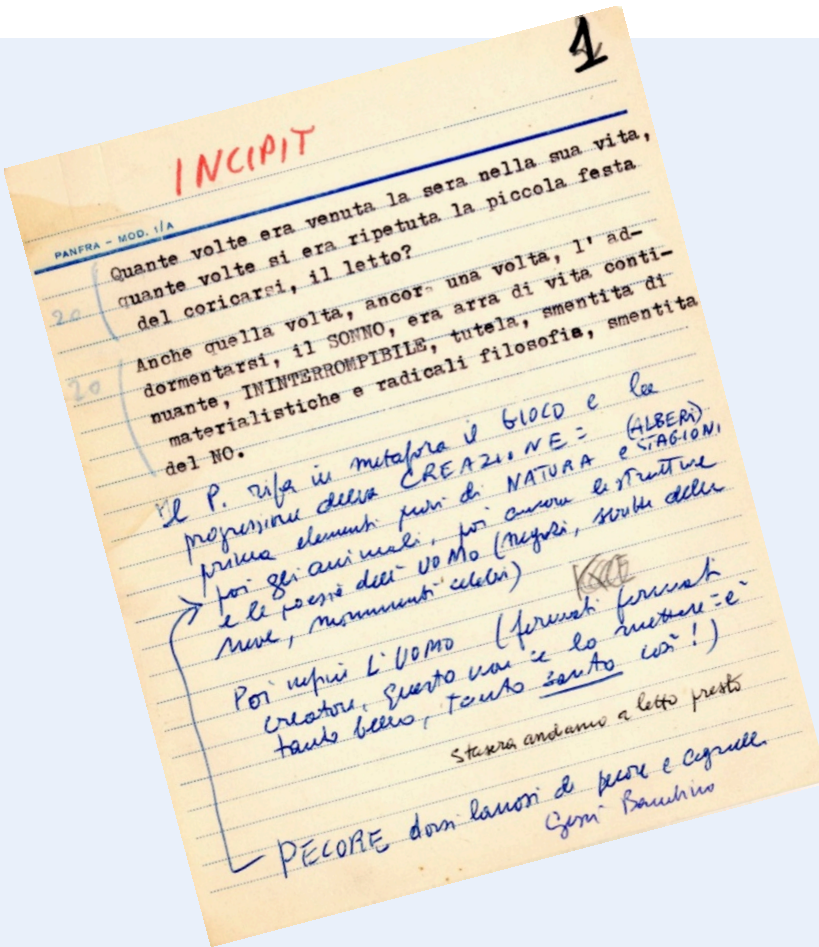 1
INCIPIT
PANFRA - MOD. 1/A
Quante volte era venuta la sera nella sua vita,
quante volte si era ripetuta la piccola festa
del coricarsi, il letto?
20
Anche quella volta, ancora una volta, l' ad-
dormentarsi, il SONNO, era arra di vita conti-
nuante, ININTERROMPIBILE, tutela, smentita di
materialistiche e radicali filosofie, smentita
del NO.
20
Il P. rifà in metafora il GIOCO e la
progressione della CREAZIONE = (ALBERI)
prima elementi puri di NATURA e STAGIONI,
poi gli animali, poi ancora le strutture
e le poesie dell' UOMO (negozi, scuole della
neve, monumenti celebri)
Poi infine L'UOMO (fermati fermati
creatore, questo non ce lo mettere = è
tanto bello, tanto santo così!)
Stasera andiamo a letto presto
PECORE dorsi lanosi di pecore e agnelle
Gesù Bambino